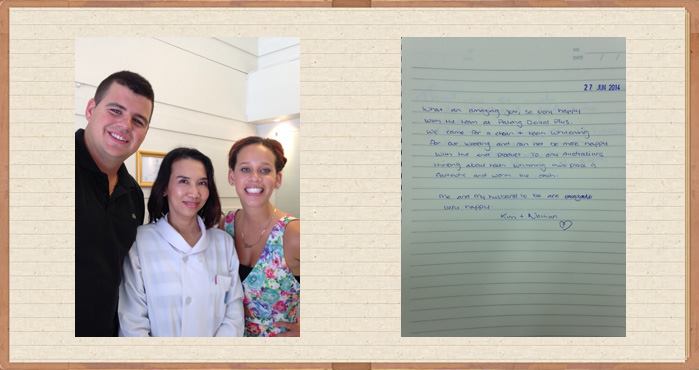 27 JUN 2014
What an amazing job, so very happy
with the team at Patong Dental Plus.
We came for a clean + teeth whitening
for our wedding and can not be more happy
with the end product. To any Australians
thinking about teeth whitening this place is
fantastic and worth the cash.
Me and my husband to be are
very happy.
Kim + Nathan